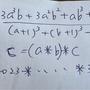 3a³b + 3a²b² + ab³ +
(a+1)³ + (b+1)³ -
c = (a*b)*c
023 * ····· *3